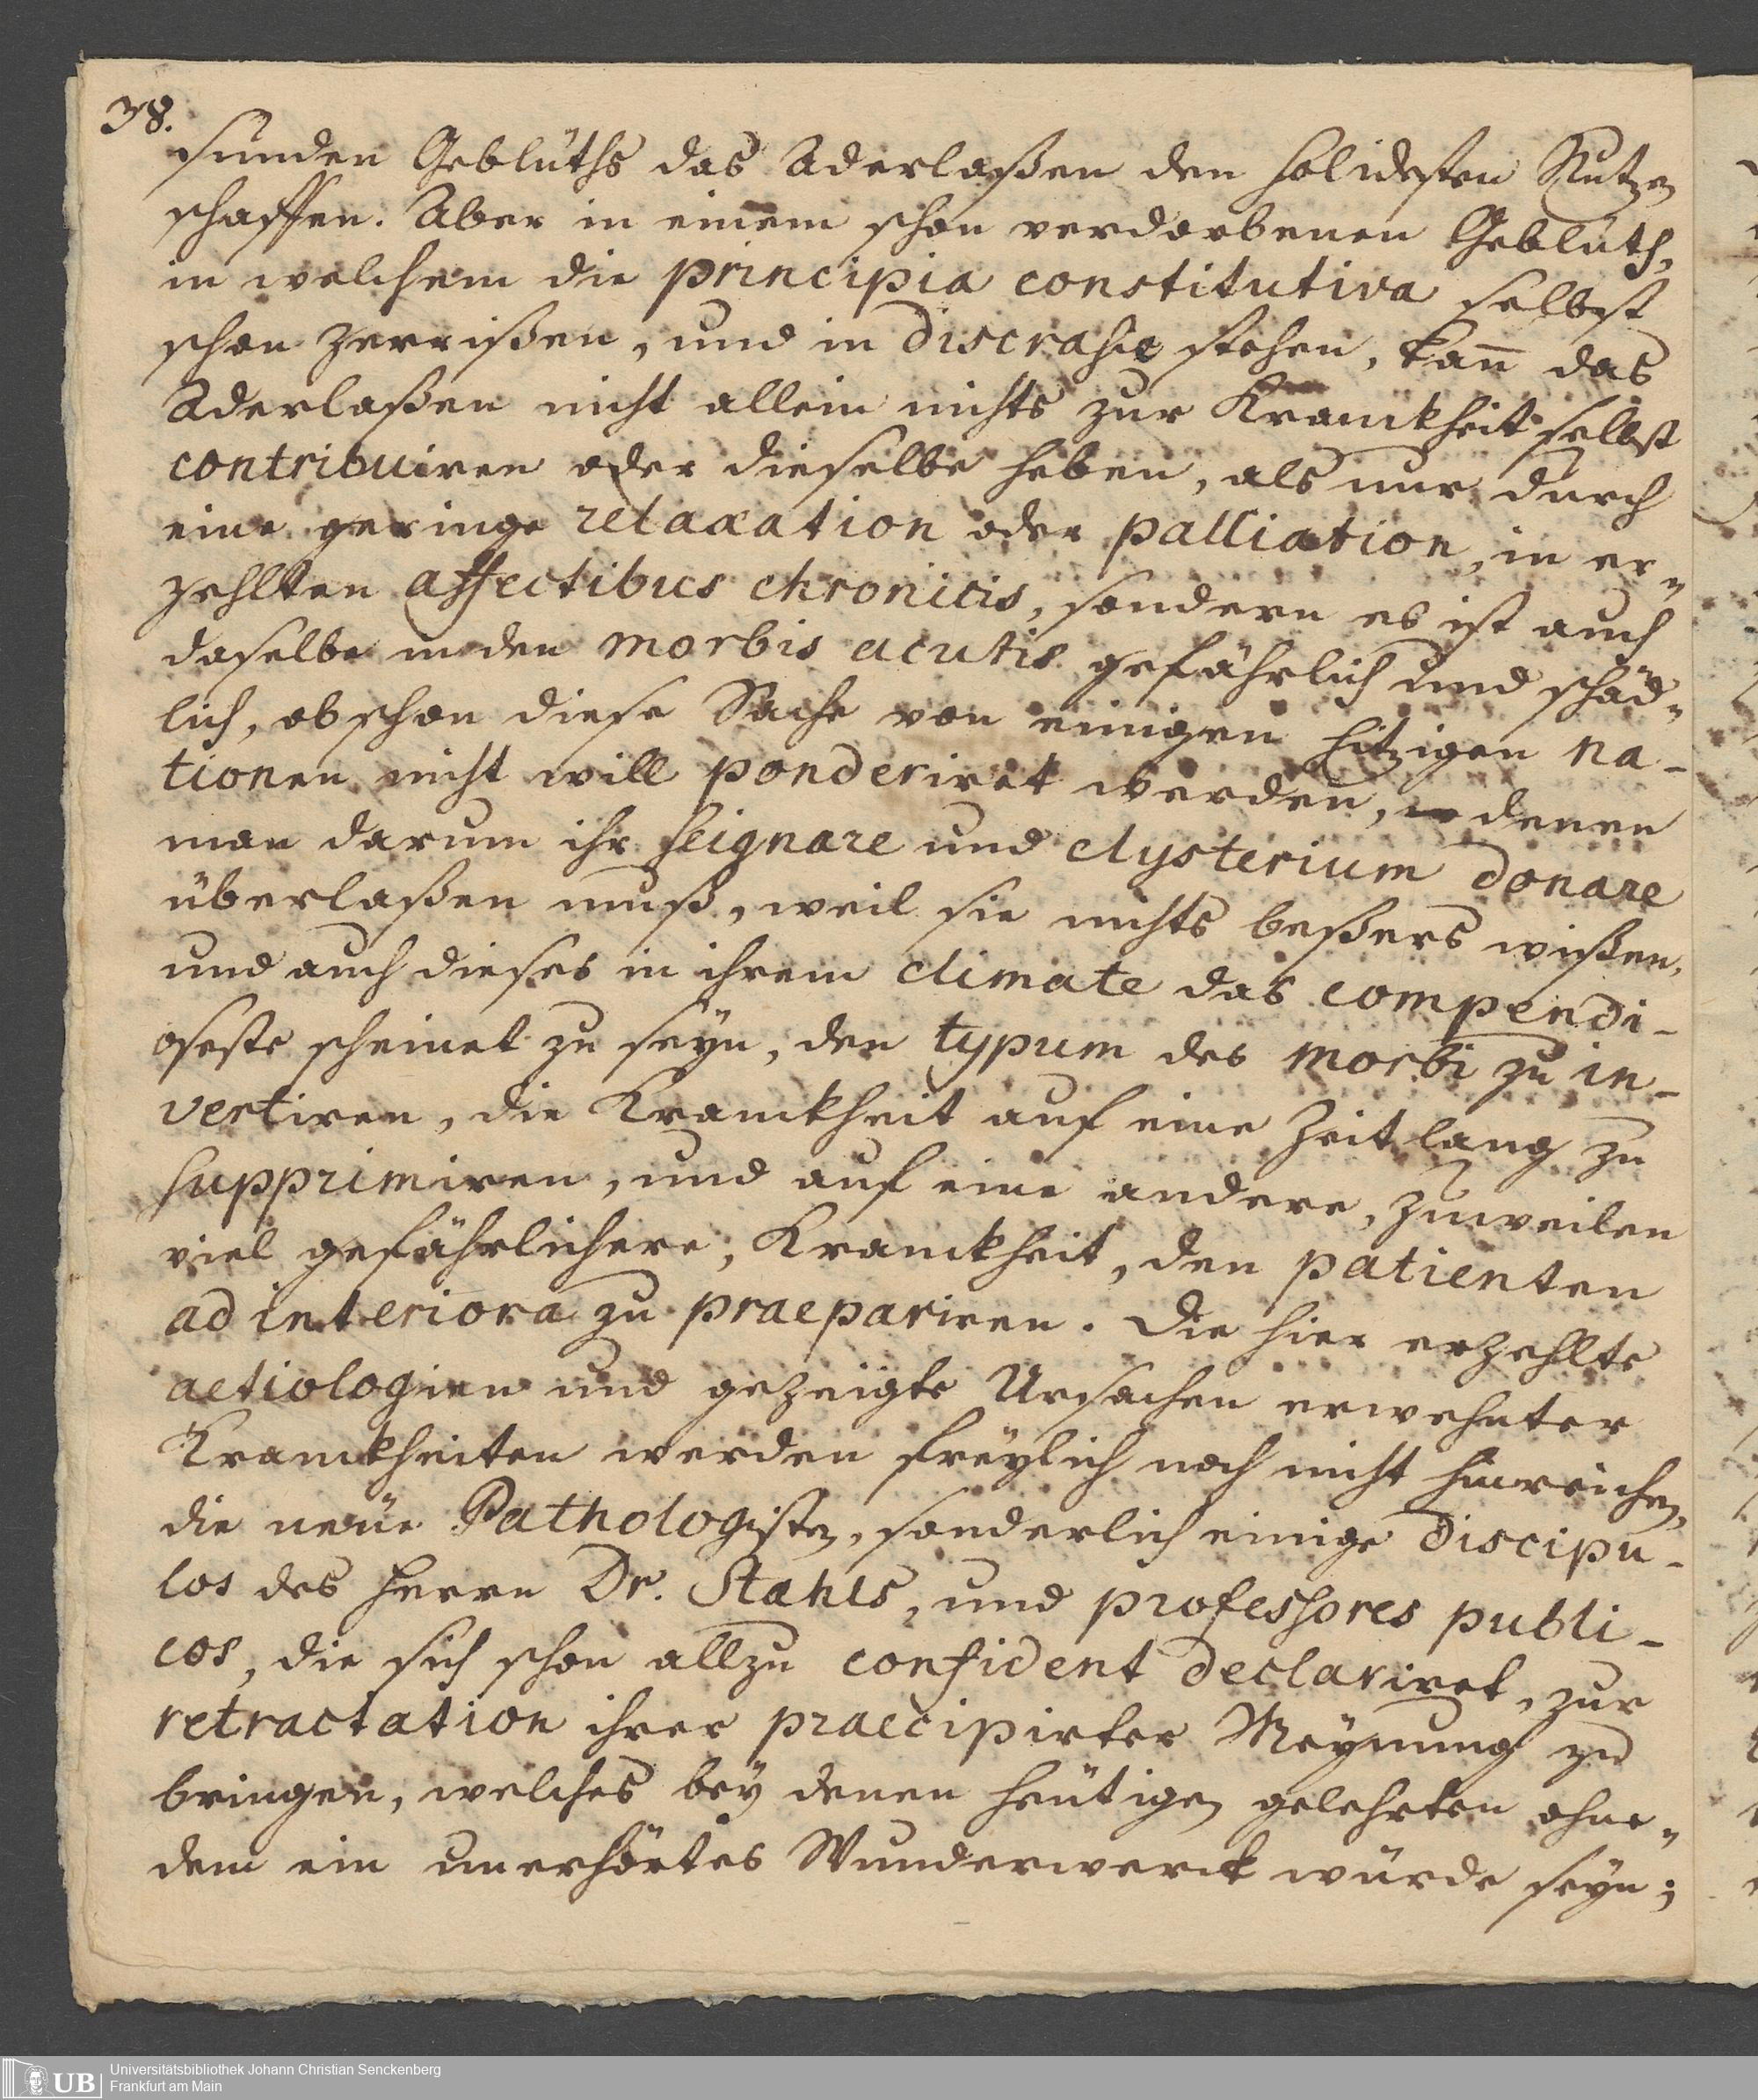 38.
sunden Geblüths das Aderlaßen den solidesten Nutzen
schaffen. Aber in einem schon verdorbenen Geblüth,
in welchem die principia constitutiva selbst
schon zerrißen, und in discrasie stehen, kan̄ das
Aderlaßen nicht allein nichts zur Kranckheit selbst
contribuiren oder dieselbe heben, als nur durch
eine geringe relaxation oder palliation, in er„
zehlten affectibus chronicis, sondern es ist auch
daselbe in den morbis acutis gefährlich und schäd„
lich, obschon diese Sache von einigen hitzigen na-
tionen nicht will ponderiret werden, denen
man darum ihr seignare und clysterium donare
überlaßen muß, weil sie nichts beßers wißen,
und auch dieses in ihrem climate das compendi-
oseste scheinet zu seyn, den typum des morbi zu in-
vertiren, die Kranckheit auf eine Zeit lang zu
supprimiren, und auf eine andere, zuweilen
viel gefährlichere, Kranckheit, den patienten
ad interiora zu praepariren. Die hier erzehlte
aetiologien und gezeigte Ursachen erwehnter
Kranckheiten werden freylich noch nicht hinreichen,
die neüe Pathologisten, sonderlich einige discipu-
los des Herrn Dr. Stahls, und professores publi-
cos, die sich schon allzu confident declariret, zur
retractation ihrer praecipirter Meynung zu
bringen, welches bey denen heütigen gelehrten ohne„
dem ein unerhörtes Wunderwerck würde seyn;
UB
Universitätsbibliothek Johann Christian Senckenberg
Frankfurt am Main